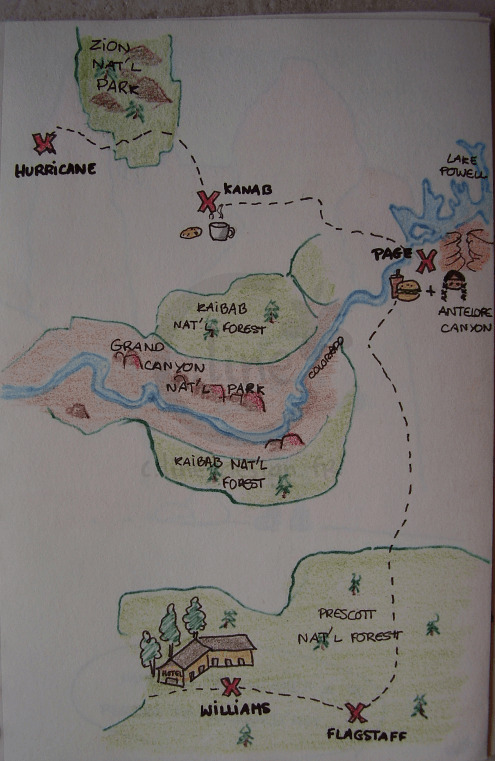 ZION
NAT'L
PARK
HURRICANE
KANAB
LAKE
POWELL
PAGE
+
ANTELOPE
CANYON
KAIBAB
NAT'L FOREST
COLORADO
GRAND
CANYON
NAT'L PARK
KAIBAB NAT'L
FOREST
PRESCOTT
NAT'L FOREST
HOTEL
WILLIAMS
FLAGSTAFF